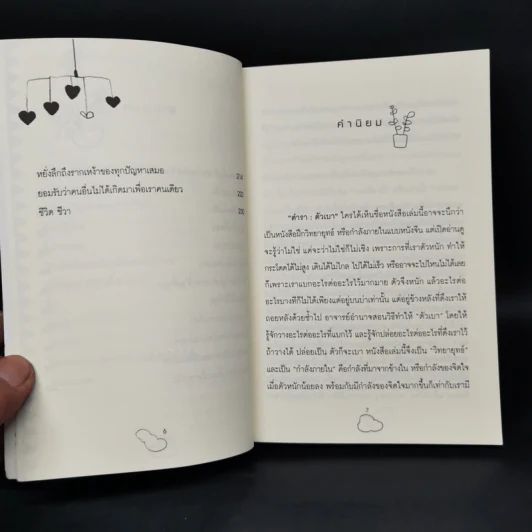 หยั่งลึกถึงรากเหง้าของทุกปัญหาเสมอ 214
ยอมรับว่าคนอื่นไม่ได้เกิดมาเพื่อเราคนเดียว
ชีวิต ชีวา
6
คำนิยม
"ตำรา : ตัวเบา" ใครได้เห็นชื่อหนังสือเล่มนี้อาจจะนึกว่า
เป็นหนังสือฝึกวิทยายุทธ์ หรือกำลังภายในแบบหนังจีน แต่เปิดอ่านดู
จะรู้ว่าไม่ใช่ แต่จะว่าไม่ใช่ก็ไม่เชิง เพราะการที่เราตัวหนัก ทำให้
กระโดดได้ไม่สูง เดินได้ไม่ไกล ไปได้ไม่เร็ว หรืออาจจะไปไหนไม่ได้เลย
ก็เพราะเราแบกอะไรต่ออะไรไว้มากมาย ตัวจึงหนัก แล้วอะไรต่อ
อะไรบางทีก็ไม่ได้เพียงแต่อยู่บนบ่าเท่านั้น แต่อยู่ข้างหลังที่ดึงเราให้
ถอยหลังด้วยซ้ำไป อาจารย์อำนาจสอนวิธีทำให้ "ตัวเบา" โดยให้
รู้จักวางอะไรต่ออะไรที่แบกไว้ และรู้จักปล่อยอะไรต่ออะไรที่ดึงเราไว้
ถ้าวางได้ ปล่อยเป็น ตัวก็จะเบา หนังสือเล่มนี้จึงเป็น "วิทยายุทธ์"
และเป็น "กำลังภายใน" คือกำลังที่มาจากข้างใน หรือกำลังของจิตใจ
เมื่อตัวหนักน้อยลง พร้อมกับมีกำลังของจิตใจมากขึ้นก็เท่ากับเรามี
7